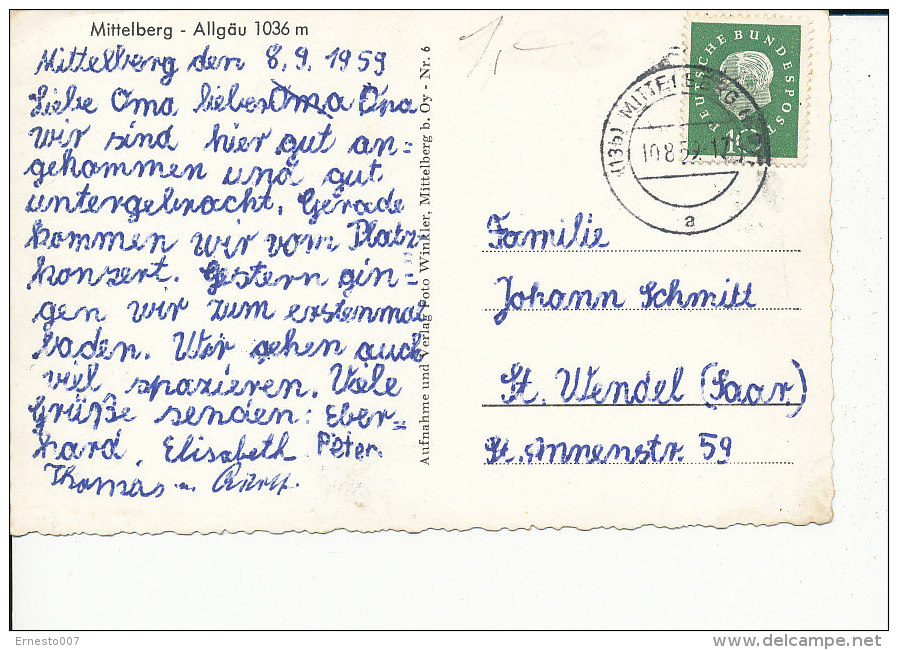 Mittelberg - Allgäu 1036 m
Mittelberg den 8.9.1959
Liebe Oma lieber Oma Opa
wir sind hier gut an=
gekommen und gut
untergebracht. Gerade
kommen wir vom Platz-
konzert. Gestern gin=
gen wir zum erstenmal
baden. Wir gehen auch
viel spazieren. Viele
Grüße senden: Eber=
hard, Elisabeth Peter
Thomas u.
Aufnahme und Verlag Foto Winkler, Mittelberg b. Oy - Nr. 6
DEUTSCHE BUNDESPOST
10
(13b) MITTELBERG
10.8.59.
a
Familie
Johann Schmitt
St. Wendel (Saar)
St. Annenstr. 59
Ernesto007
delcampe.net